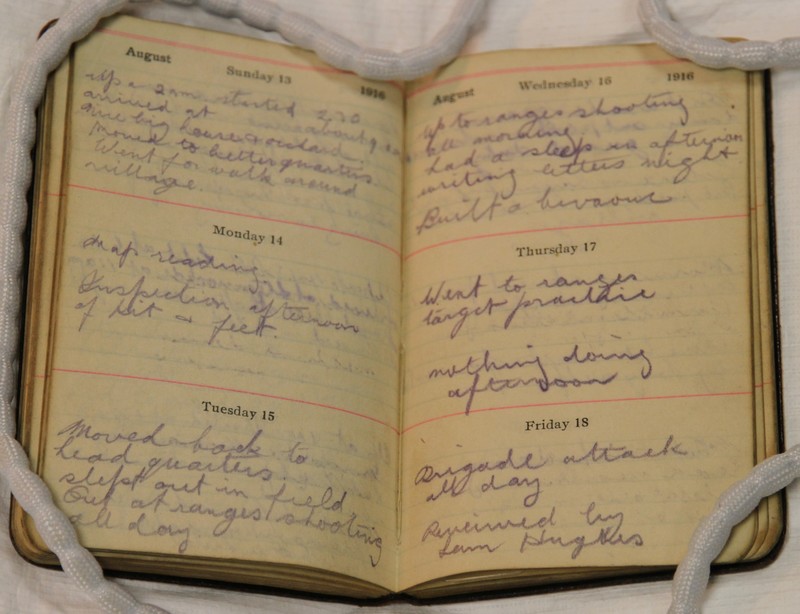 August
Sunday 13
1916
Up a 2am started 2.30
arrived at about 9 am
nice big house & orchard.
Moved to better quarters
Went for walk around
village.
Monday 14
Map reading
Inspection afternoon
of kit & feet.
Tuesday 15
Moved back to
head quarters.
slept out in field
Out at ranges shooting
all day
August
Wednesday 16
1916
Up to ranges shooting
all morning
had a sleep in afternoon
writing letters night
Built a bivaouc
Thursday 17
Went to ranges
target practice
nothing doing
afternoon
Friday 18
Brigade attack
all day
Received by
Sam Hughes